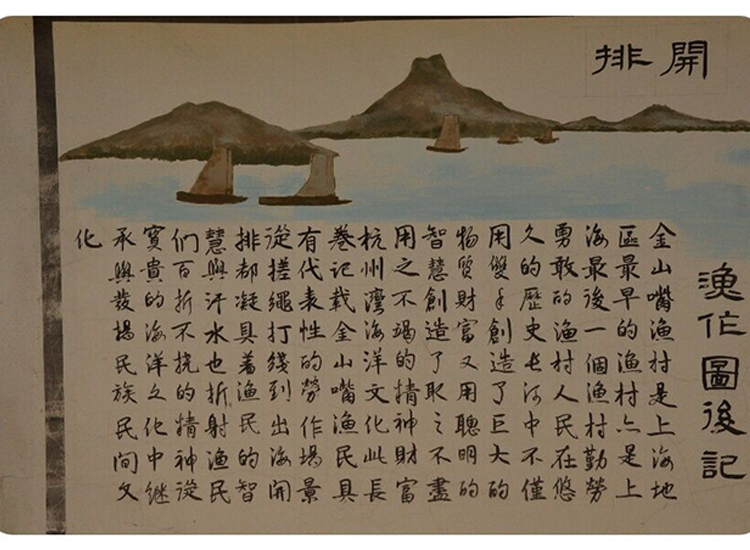 開排
漁作圖後記
金山嘴渔村是上海地
區最早的渔村亦是上
海最後一個渔村勤勞
勇敢的渔村人民在悠
久的歷史长河中不僅
用雙手創造了巨大的
物質財富又用聰明的
智慧創造了取之不盡
用之不竭的精神財富
杭州灣海洋文化此長
卷记載金山嘴渔民具
有代表性的勞作場景
從搓繩打綫到出海開
排都凝具着渔民的智
慧與汗水也折射渔民
们百折不挠的精神從
寶貴的海洋文化中继
承與發揚民族民間文
化